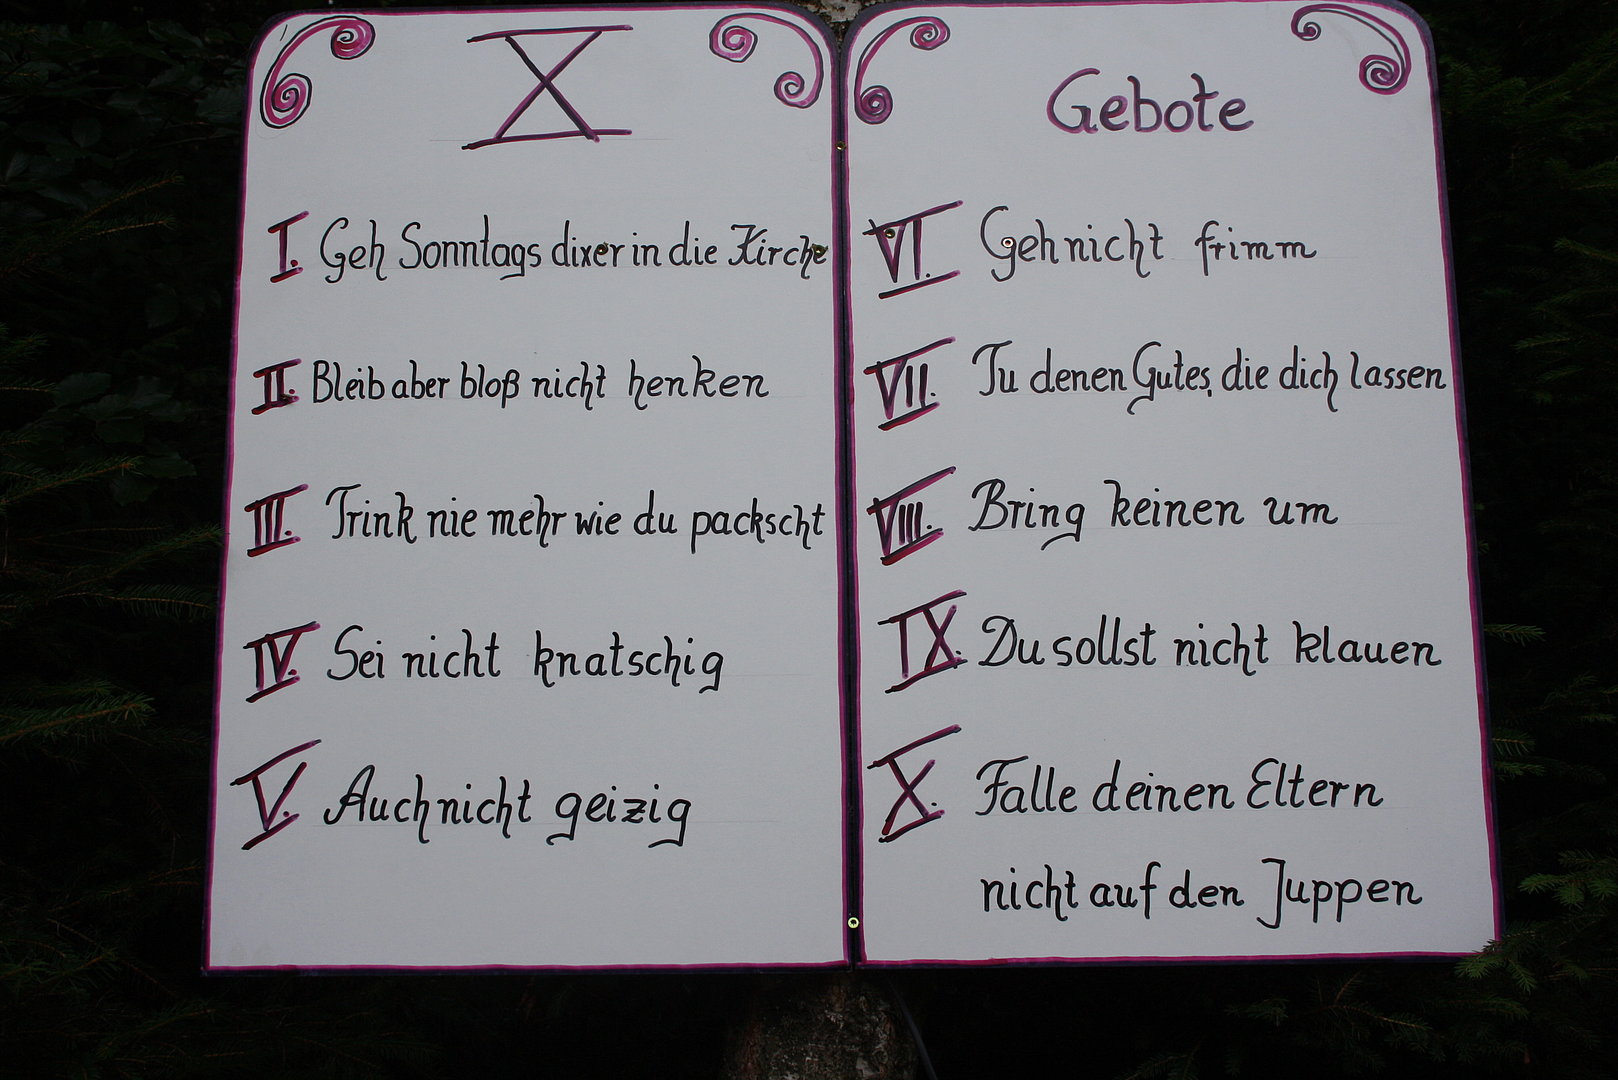 X
I. Geh Sonntags dixer in die Kirche
II. Bleib aber bloß nicht henken
III. Trink nie mehr wie du packscht
IV. Sei nicht knatschig
V. Auch nicht geizig
Gebote
VI. Geh nicht frimm
VII. Tu denen Gutes, die dich lassen
VIII. Bring keinen um
IX. Du sollst nicht klauen
X. Falle deinen Eltern
nicht auf den Juppen